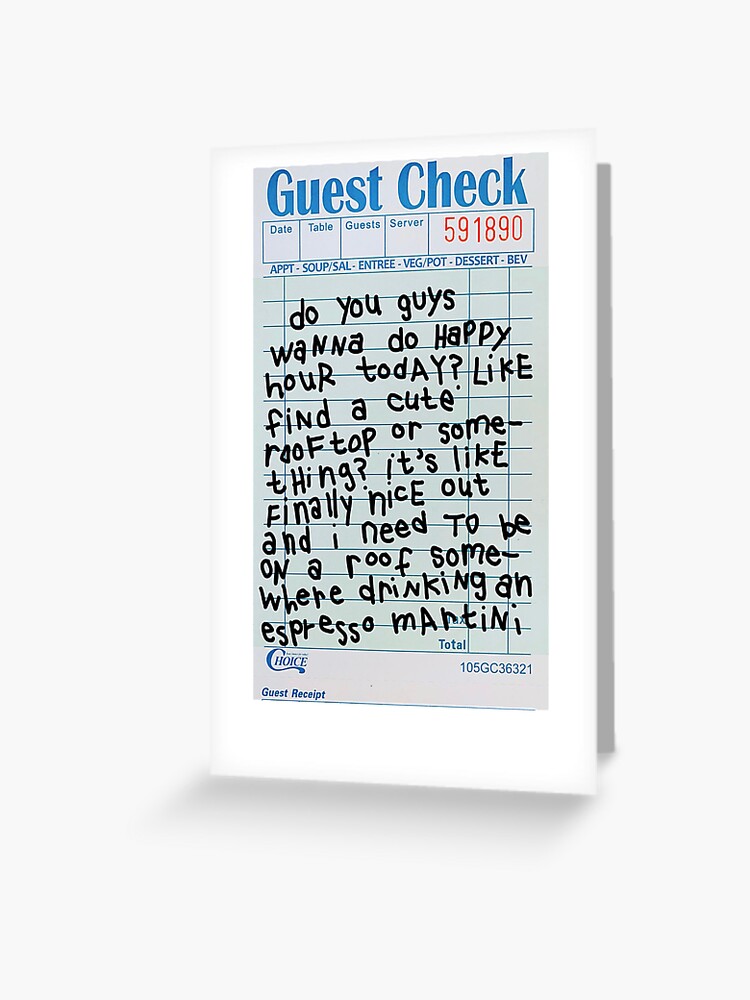 Guest Check
Date Table Guests Server 591890
APPT - SOUP/SAL - ENTREE - VEG/POT - DESSERT - BEV
do you guys
wanna do happy
houR todAY? LiKE
find a cute
rooftop or some-
thing? it's like
finally nice out
and i need to be
on a roof some-
where drinking an
espresso martini
Total
CHOICE 105GC36321
Guest Receipt